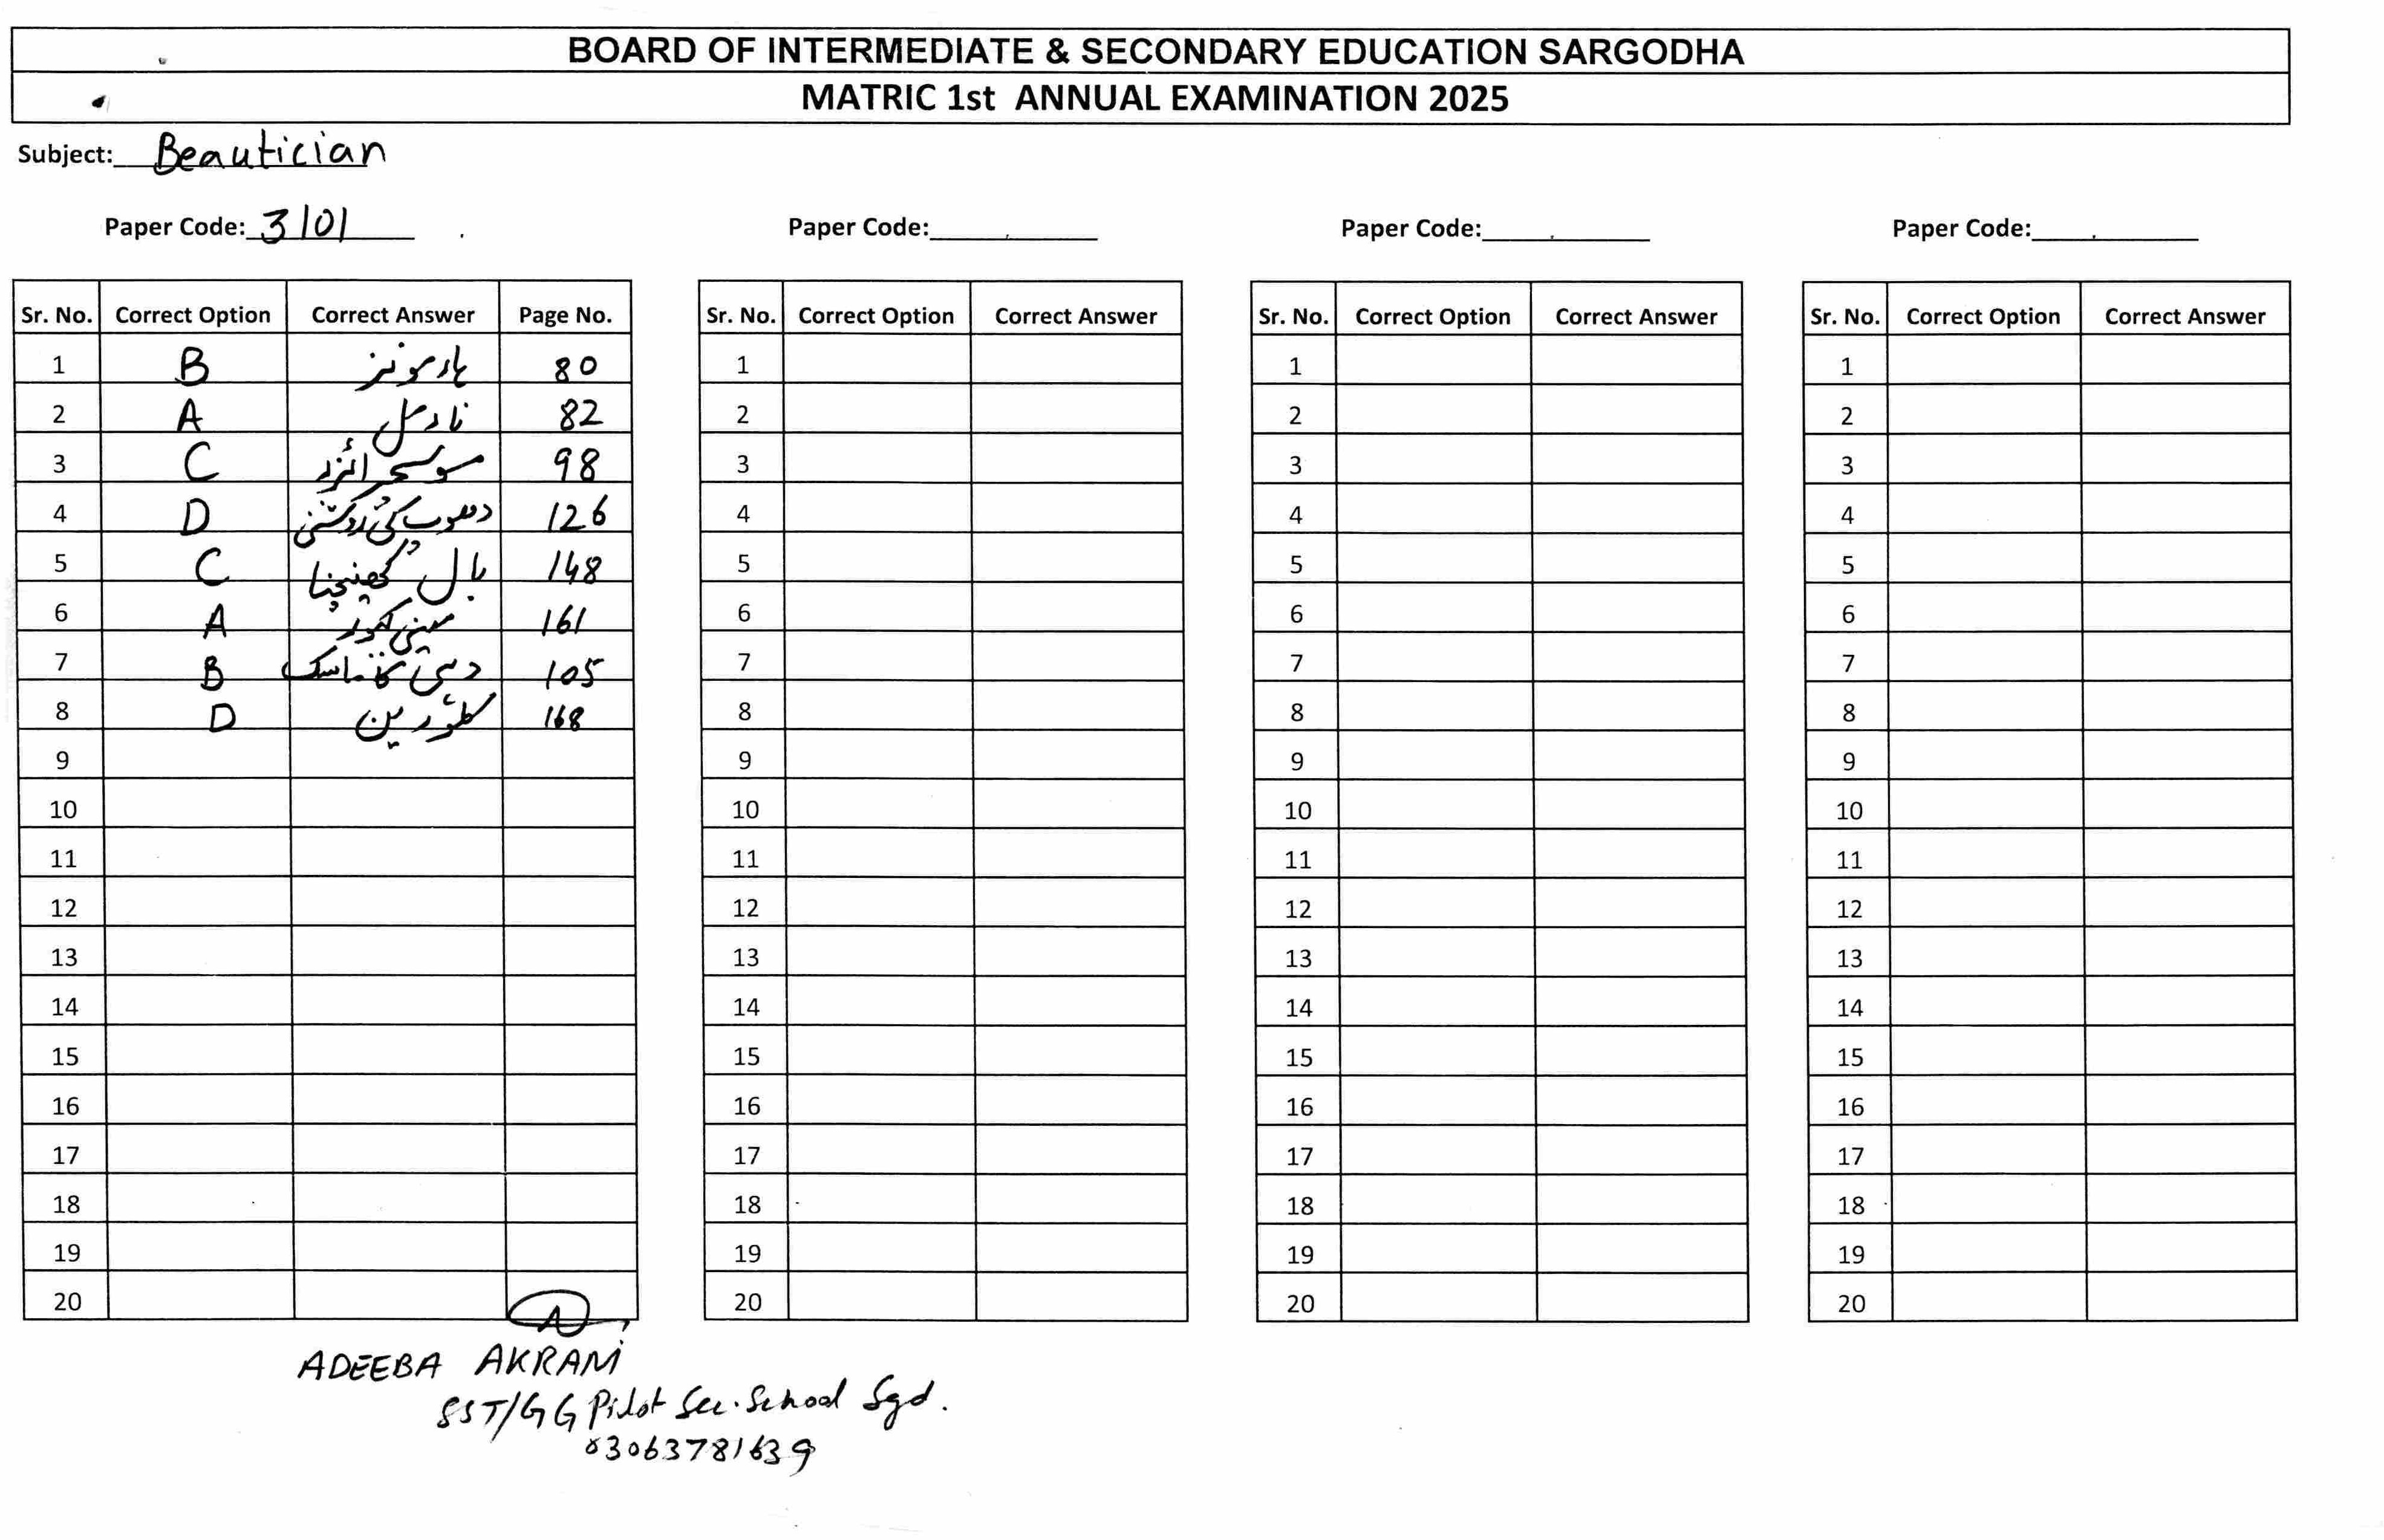 BOARD OF INTERMEDIATE & SECONDARY EDUCATION SARGODHA
MATRIC 1st ANNUAL EXAMINATION 2025
Subject: Beautician
Paper Code: 3101 Paper Code: Paper Code: Paper Code:
Sr. No. Correct Option Correct Answer Page No. Sr. No. Correct Option Correct Answer Sr. No. Correct Option Correct Answer Sr. No. Correct Option Correct Answer
1 B ہارمونز 80 1 1 1
2 A نارمل 82 2 2 2
3 C موئسچرائزر 98 3 3 3
4 D دھوپ کی روشنی 126 4 4 4
5 C بال کھینچنا 148 5 5 5
6 A مینی کیور 161 6 6 6
7 B دہی کا ماسک 105 7 7 7
8 D کلورین 168 8 8 8
9 9 9 9
10 10 10 10
11 11 11 11
12 12 12 12
13 13 13 13
14 14 14 14
15 15 15 15
16 16 16 16
17 17 17 17
18 18 18 18
19 19 19 19
20 20 20 20
ADEEBA AKRAM
SST/GG Pilot Sec. School Sgd.
03063781639